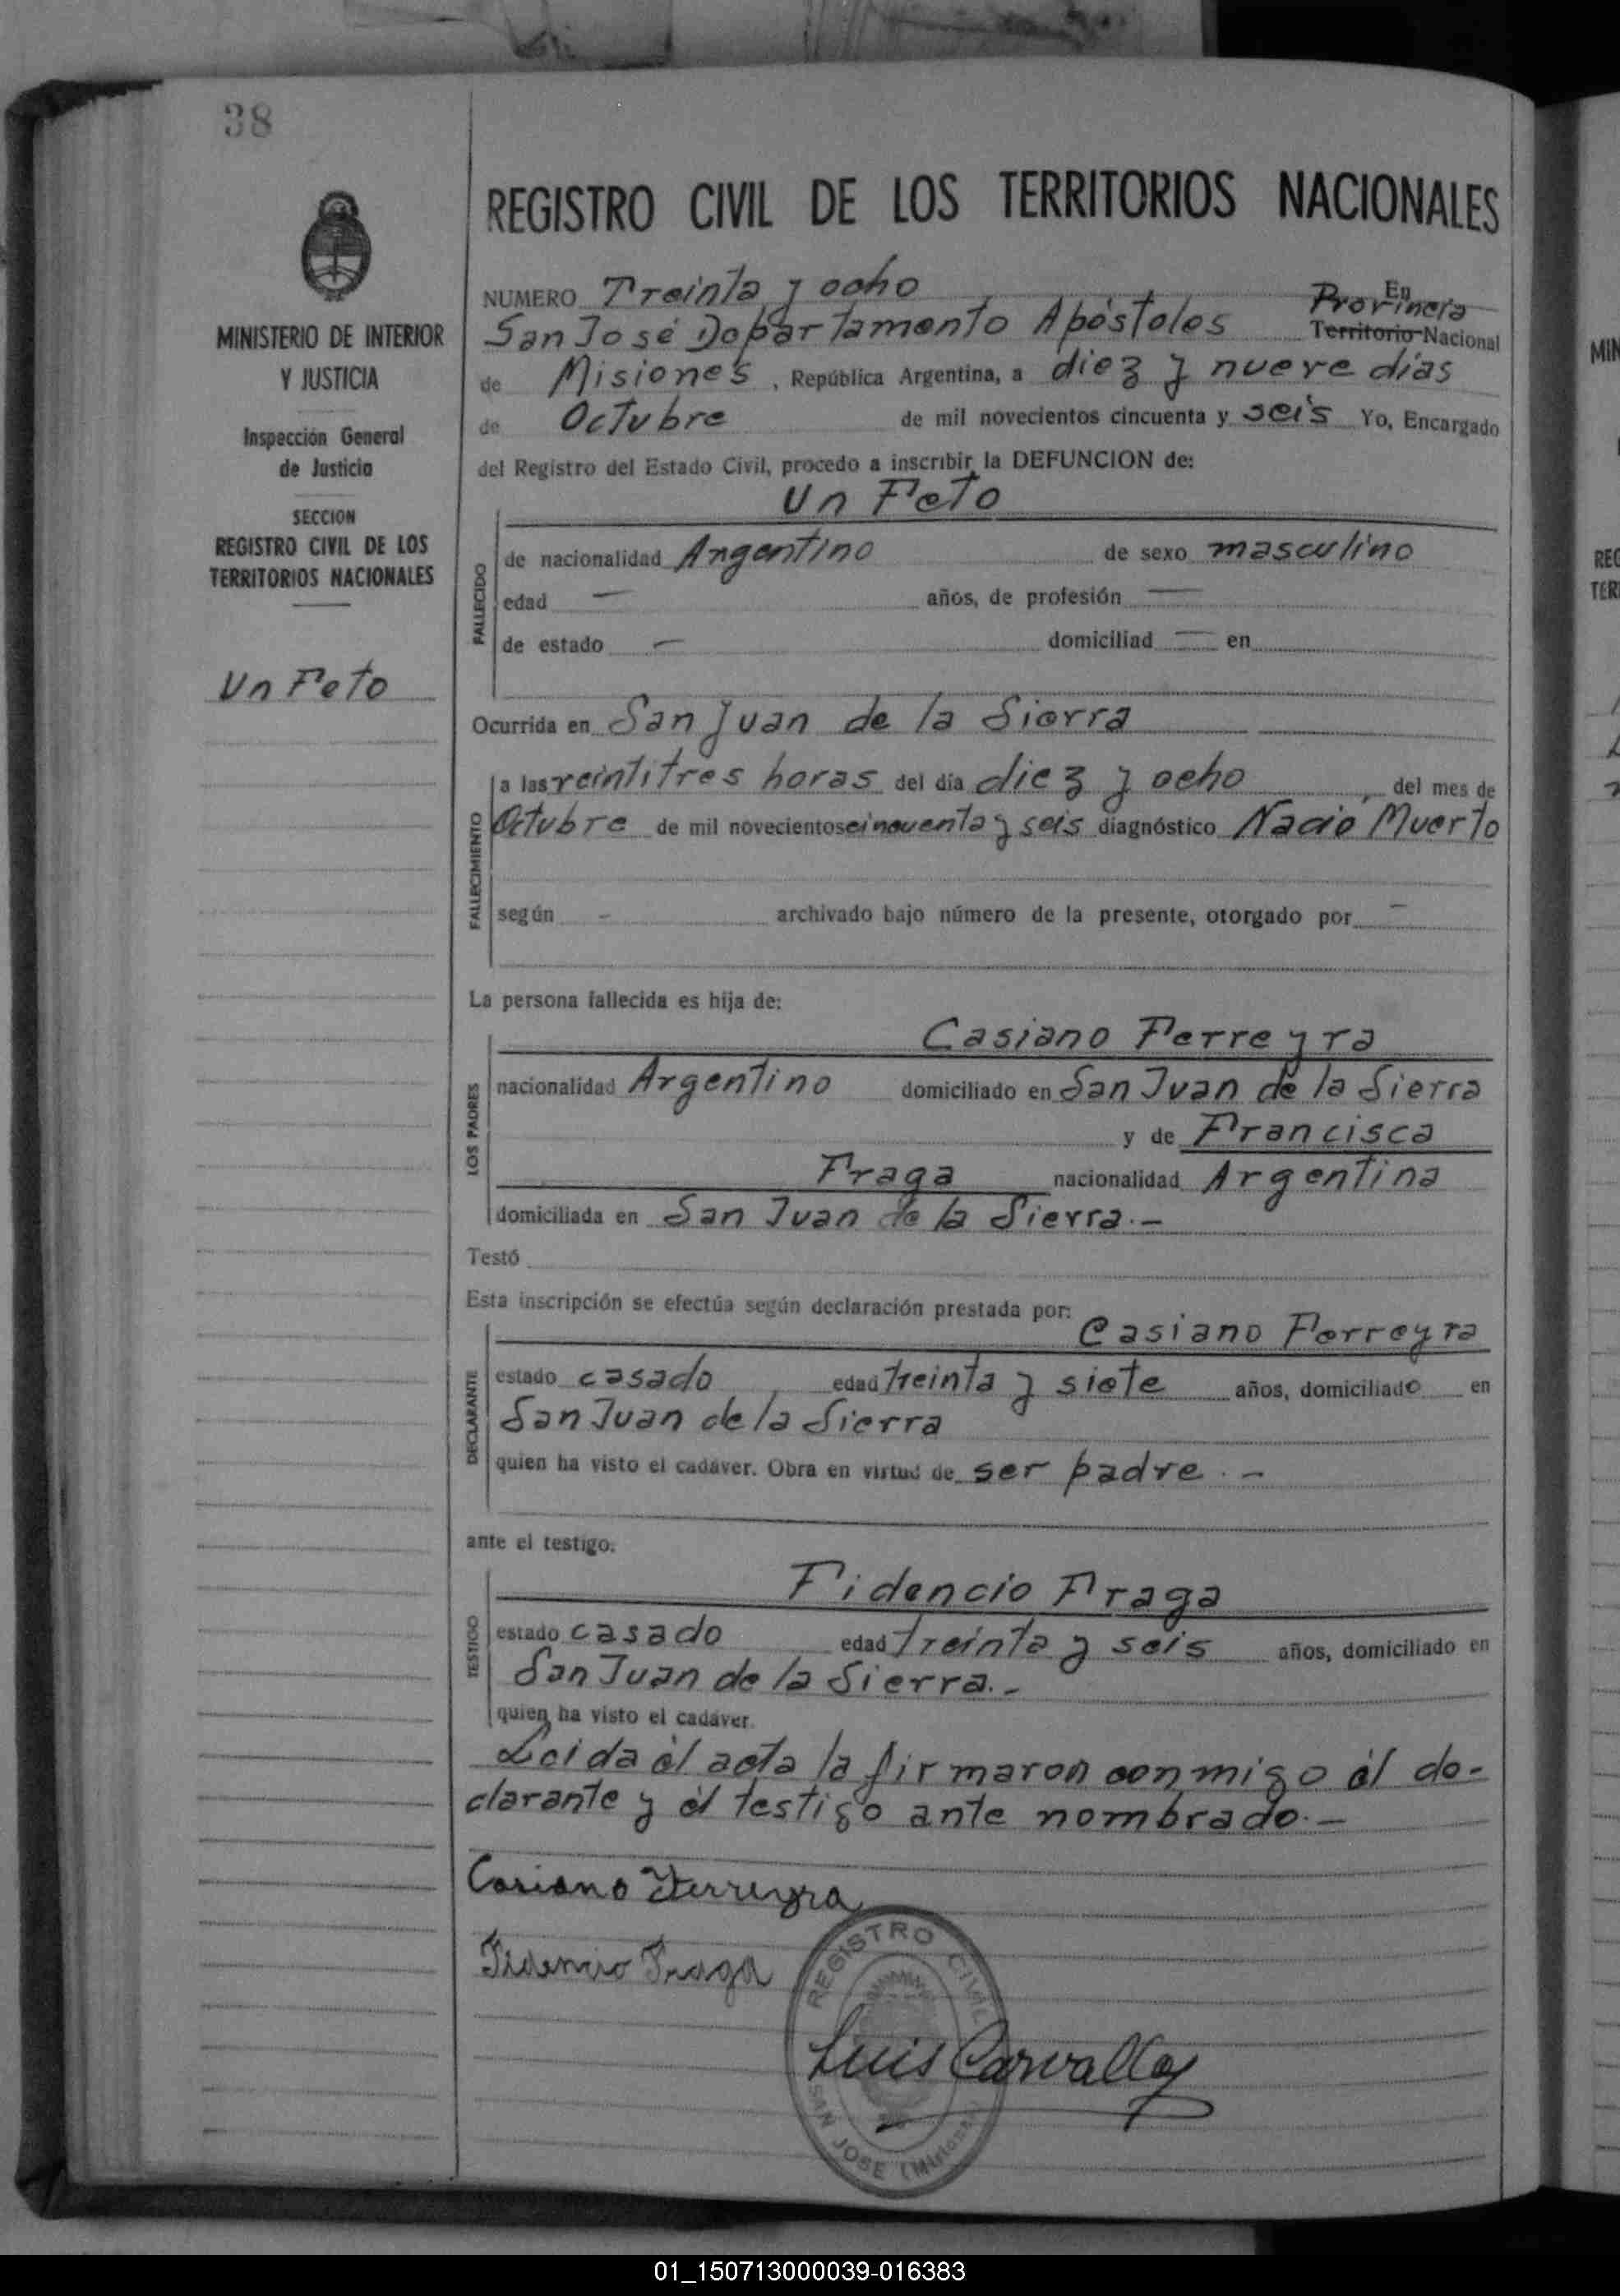 38
REGISTRO CIVIL DE LOS TERRITORIOS NACIONALES
MINISTERIO DE INTERIOR
Y JUSTICIA
Inspección General
de Justicia
SECCION
REGISTRO CIVIL DE LOS
TERRITORIOS NACIONALES
Un Feto
NUMERO Treinta y ocho En
San José Departamento Apóstoles Provincia Territorio Nacional
de Misiones, República Argentina, a diez y nueve días
de Octubre de mil novecientos cincuenta y seis Yo, Encargado
del Registro del Estado Civil, procedo a inscribir la DEFUNCION de:
Un Feto
FALLECIDO
de nacionalidad Argentino de sexo masculino
edad — años, de profesión —
de estado — domiciliad — en
Ocurrida en San Juan de la Sierra
FALLECIMIENTO
a las veintitres horas del día diez y ocho, del mes de
Octubre de mil novecientos cincuenta y seis diagnóstico Nació Muerto
según - archivado bajo número de la presente, otorgado por -
La persona fallecida es hija de:
LOS PADRES
Casiano Ferreyra
nacionalidad Argentino domiciliado en San Juan de la Sierra
y de Francisca
Fraga nacionalidad Argentina
domiciliada en San Juan de la Sierra.-
Testó
Esta inscripción se efectúa según declaración prestada por:
Casiano Ferreyra
DECLARANTE
estado casado, edad treinta y siete años, domiciliado en
San Juan de la Sierra
quien ha visto el cadáver. Obra en virtud de ser padre.-
ante el testigo:
Fidencio Fraga
TESTIGO
estado casado edad treinta y seis años, domiciliado en
San Juan de la Sierra.-
quien ha visto el cadáver.
Leida él acta la firmaron conmigo él de-
clarante y él testigo ante nombrado.-
Casiano Ferreyra
Fidencio Fraga
REGISTRO CIVIL
Luis Carvallo
SAN JOSE (Misiones)
01_150713000039-016383